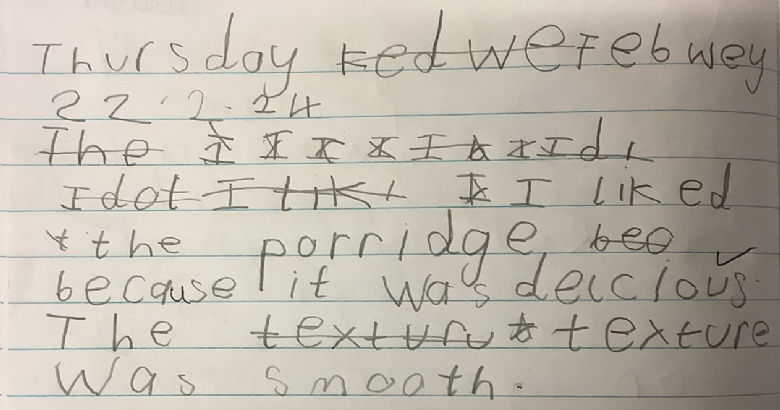 Thursday Ked weFebwey
22.2.24
The I I I I I I Id
I dot I like I I liked
the porridge beo
because it was deiccious.
The texturu texture
was smooth.